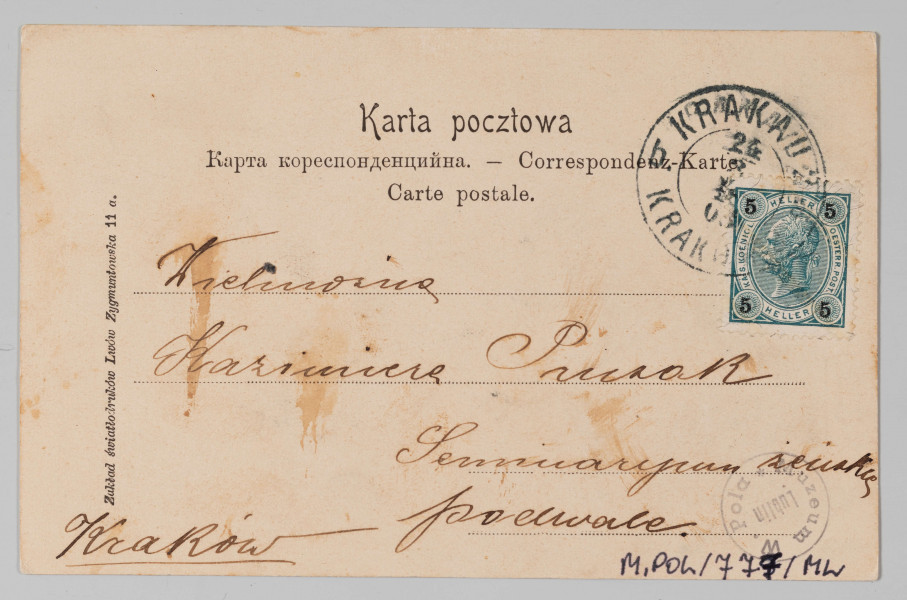 Karta pocztowa
Карта кореспонденцийна. — Correspondenz-Karte
Carte postale.
KRAKAU
24
03
KRAK
5 HELLER 5
KAIS. KOENIGL. OESTERR. POST
5 HELLER 5
Wielmożna
Kazimiera Prusak
Seminaryum żeńskie
podwale.
Kraków
Zakład światłodruków Lwów Zygmuntowska 11 a.
Muzeum
Lublin
Pola W
M.POL/777/ML